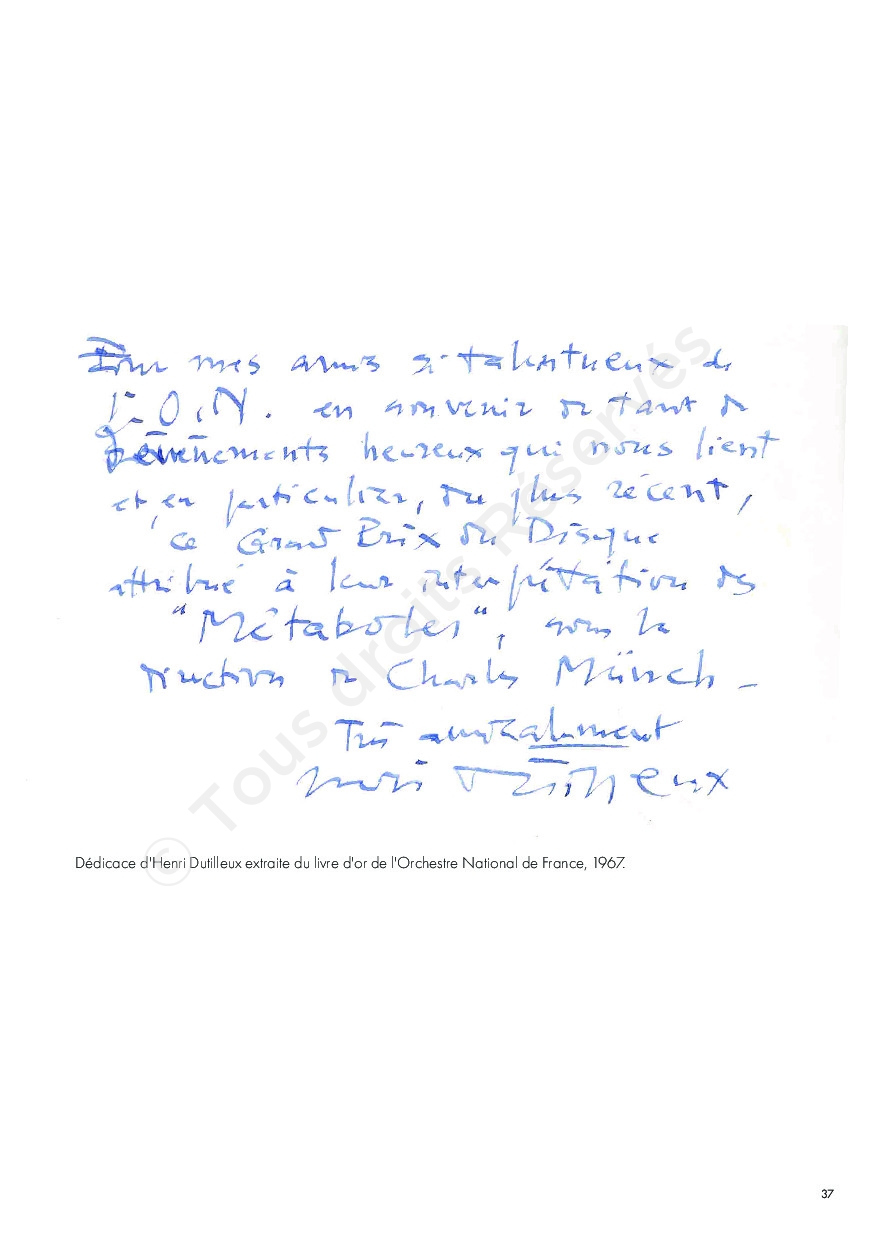 Pour mes amis si talentueux de
l'O.N. en souvenir de tant de
évènements heureux qui nous lient
et, en particulier, du plus récent,
ce Grand Prix du Disque
attribué à leur interprétation des
"Métaboles", sous la
direction de Charles Münch -
Très amicalement
Henri Dutilleux
© Tous droits Réservés
Dédicace d'Henri Dutilleux extraite du livre d'or de l'Orchestre National de France, 1967.
37